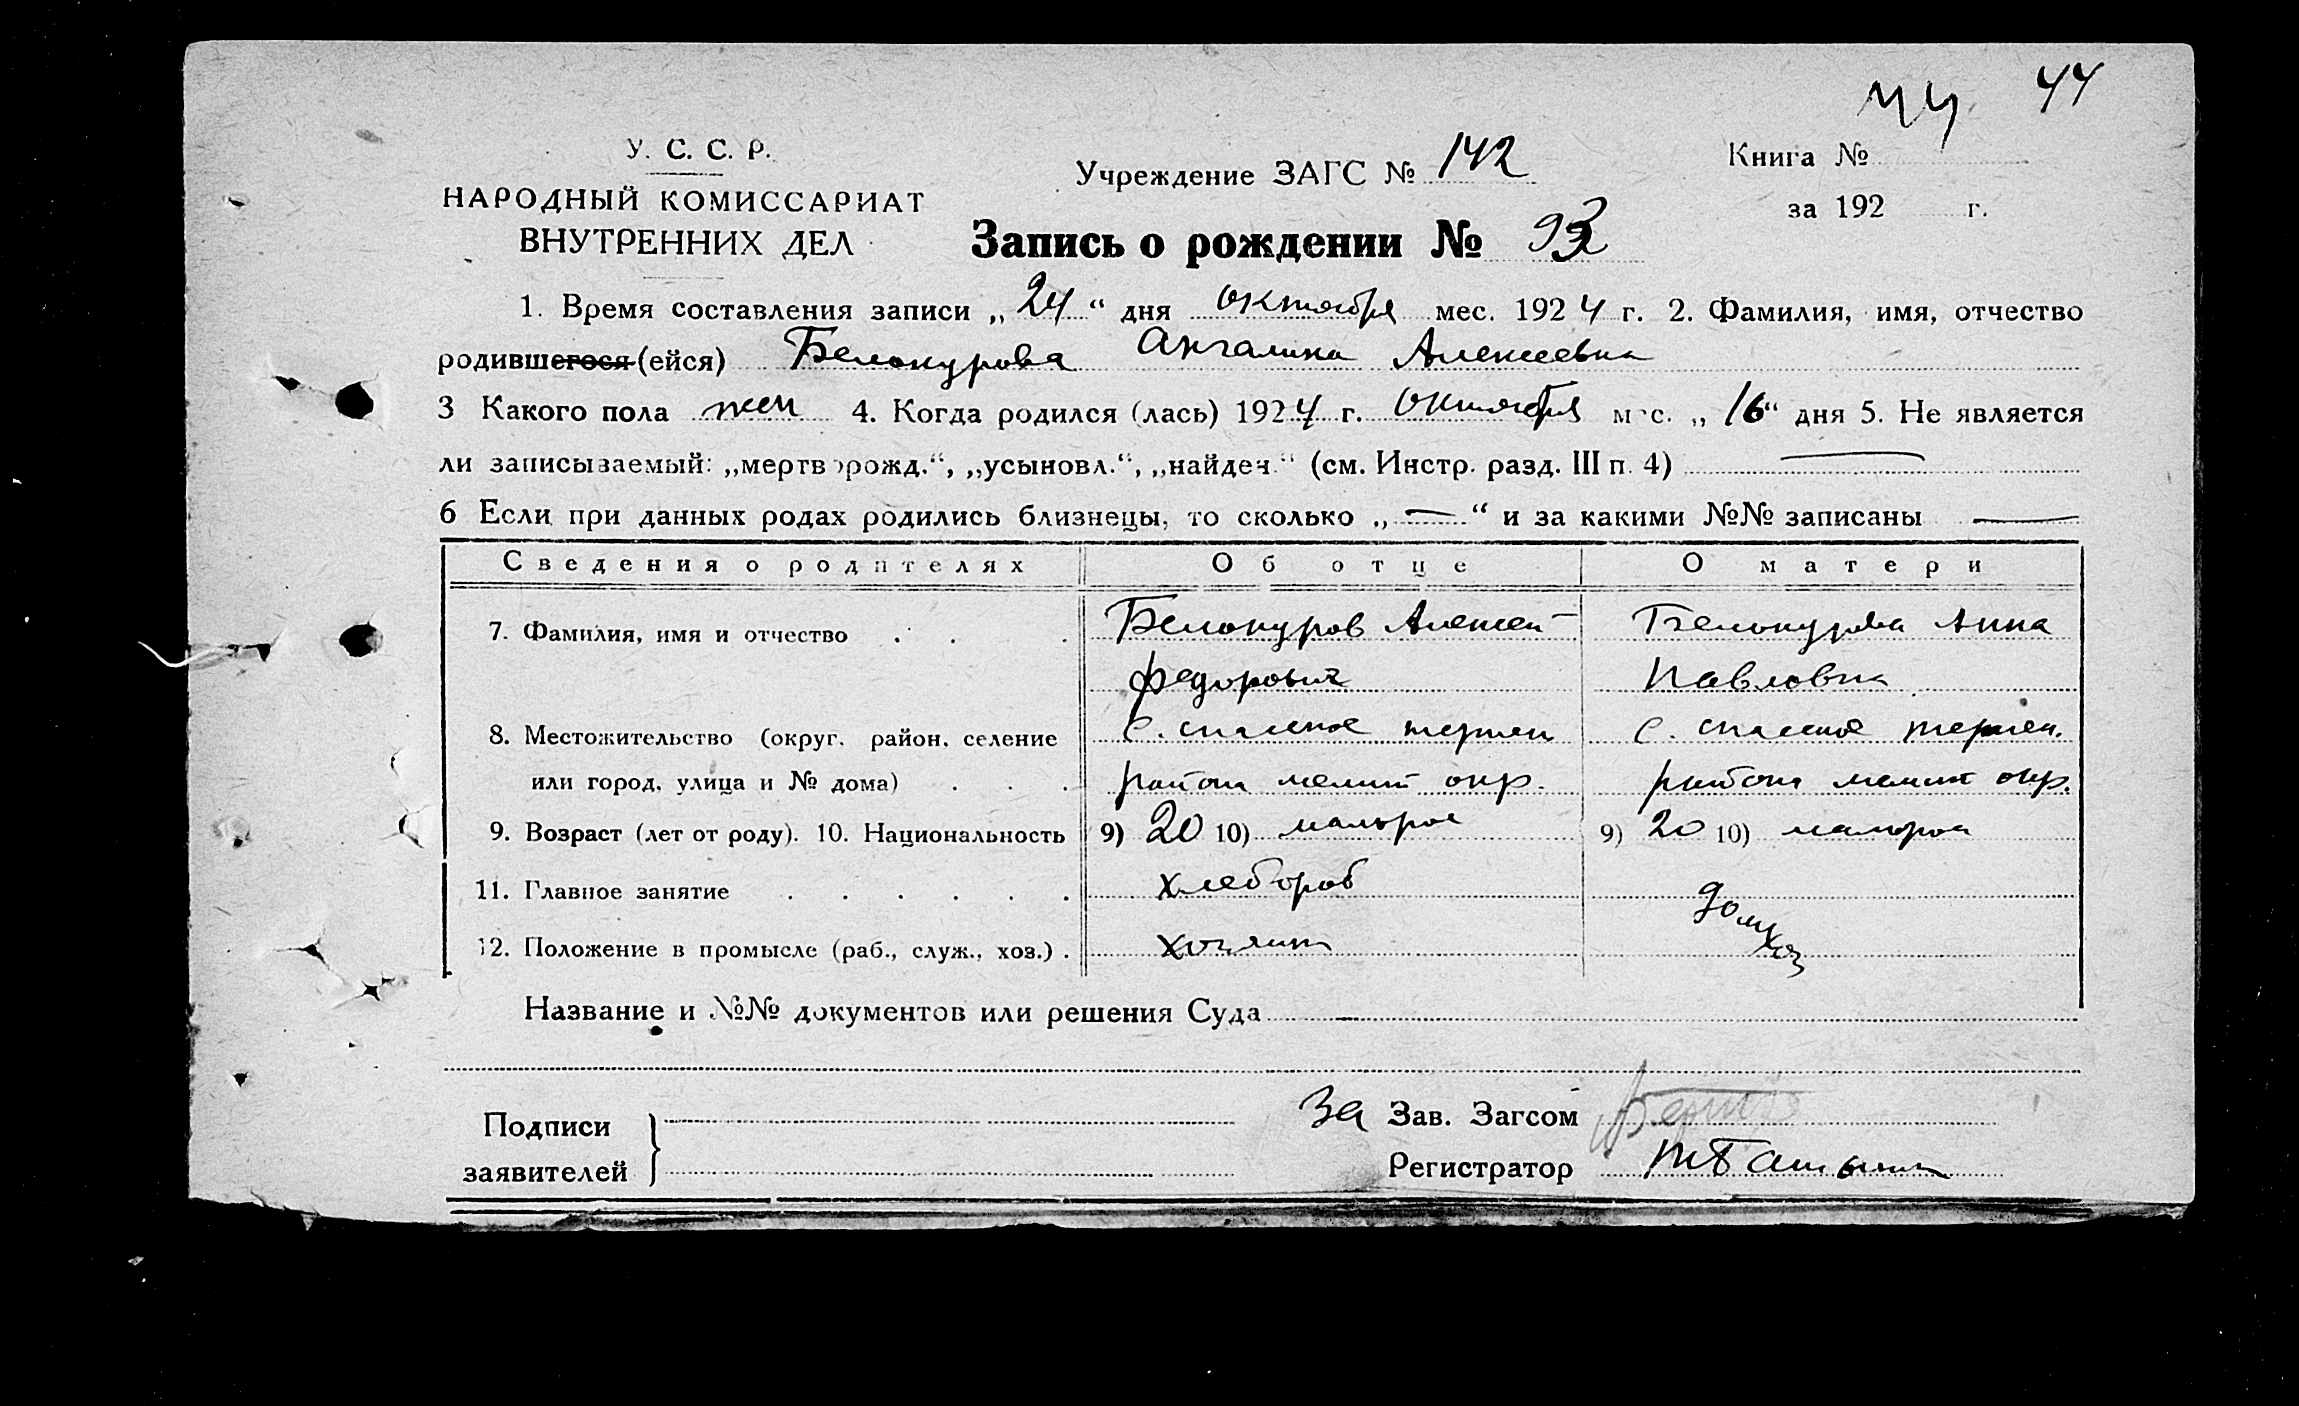 44 44
У. С. С. Р.
НАРОДНЫЙ КОМИССАРИАТ
ВНУТРЕННИХ ДЕЛ
Учреждение ЗАГС № 142
Книга №
за 192 г.
Запись о рождении № 93
1. Время составления записи „24“ дня октября мес. 1924 г. 2. Фамилия, имя, отчество
родившегося (ейся) Белокурова Ангалина Алексеевна
3 Какого пола жен 4. Когда родился (лась) 1924 г. октября мес. „16“ дня 5. Не является
ли записываемый: „мертворожд.“, „усыновл.“, „найден.“ (см. Инстр. разд. III п. 4) —
6 Если при данных родах родились близнецы, то сколько „—“ и за какими №№ записаны —
Сведения о родителях Об отце О матери
7. Фамилия, имя и отчество . . . Белокуров Алексей Белокурова Анна
Федорович Павловна
8. Местожительство (округ, район, селение с. спасское терпен с. спасское терпен.
или город, улица и № дома) . . . района мелит окр. района мелит окр.
9. Возраст (лет от роду). 10. Национальность 9) 20 10) 9) 20 10)
11. Главное занятие . . . . . . хлебороб домхоз
12. Положение в промысле (раб., служ., хоз.) . хозяин
Название и №№ документов или решения Суда —
За Зав. Загсом
Подписи
заявителей
Регистратор